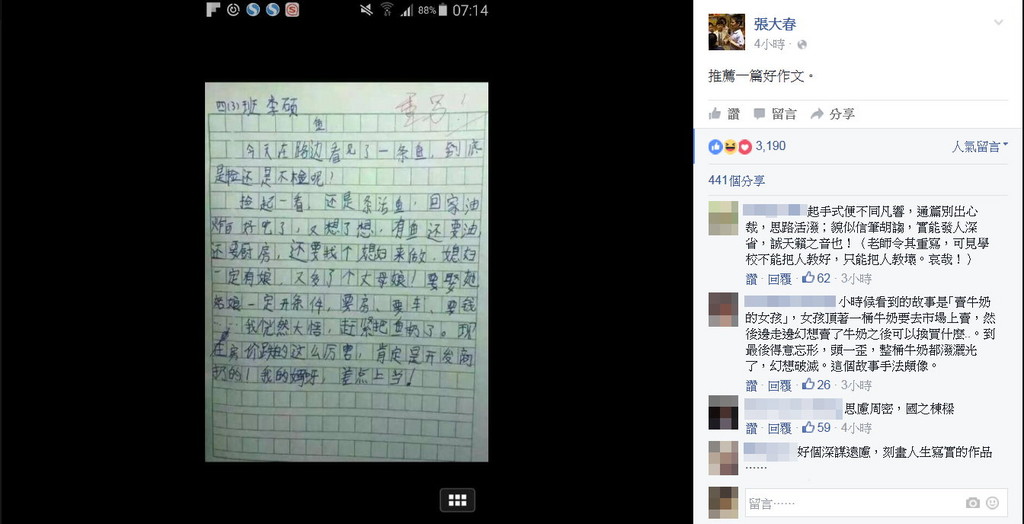 88% 07:14
四(3)班 李硕
重写!
鱼
今天在路边看见了一条鱼，到底
是捡还是不捡呢！
捡起一看，还是条活鱼，回家油
炸的好吃了，又想了想，有鱼还要油，
还要厨房，还要找个媳妇来做，媳妇
一定有娘，又多了个丈母娘！要娶她
姑娘一定开条件，要房、要车、要钱
……我恍然大悟，赶紧把鱼扔了。现
在房价跌的这么厉害，肯定是开发商
扔的！我的妈呀，差点上当！
張大春
4小時
推薦一篇好作文。
讚 留言 分享
3,190 人氣留言
441個分享
起手式便不同凡響，通篇別出心
裁，思路活潑；貌似信筆胡謅，實能發人深
省，誠天籟之音也！（老師令其重寫，可見學
校不能把人教好，只能把人教壞。哀哉！）
讚 · 回覆 · 62 · 3小時
小時候看到的故事是「賣牛奶
的女孩」，女孩頂著一桶牛奶要去市場上賣，然
後邊走邊幻想賣了牛奶之後可以換買什麼..。到
最後得意忘形，頭一歪，整桶牛奶都潑灑光
了，幻想破滅。這個故事手法頗像。
讚 · 回覆 · 26 · 3小時
思慮周密，國之棟樑
讚 · 回覆 · 59 · 4小時
好個深謀遠慮，刻畫人生寫實的作品
……
留言……